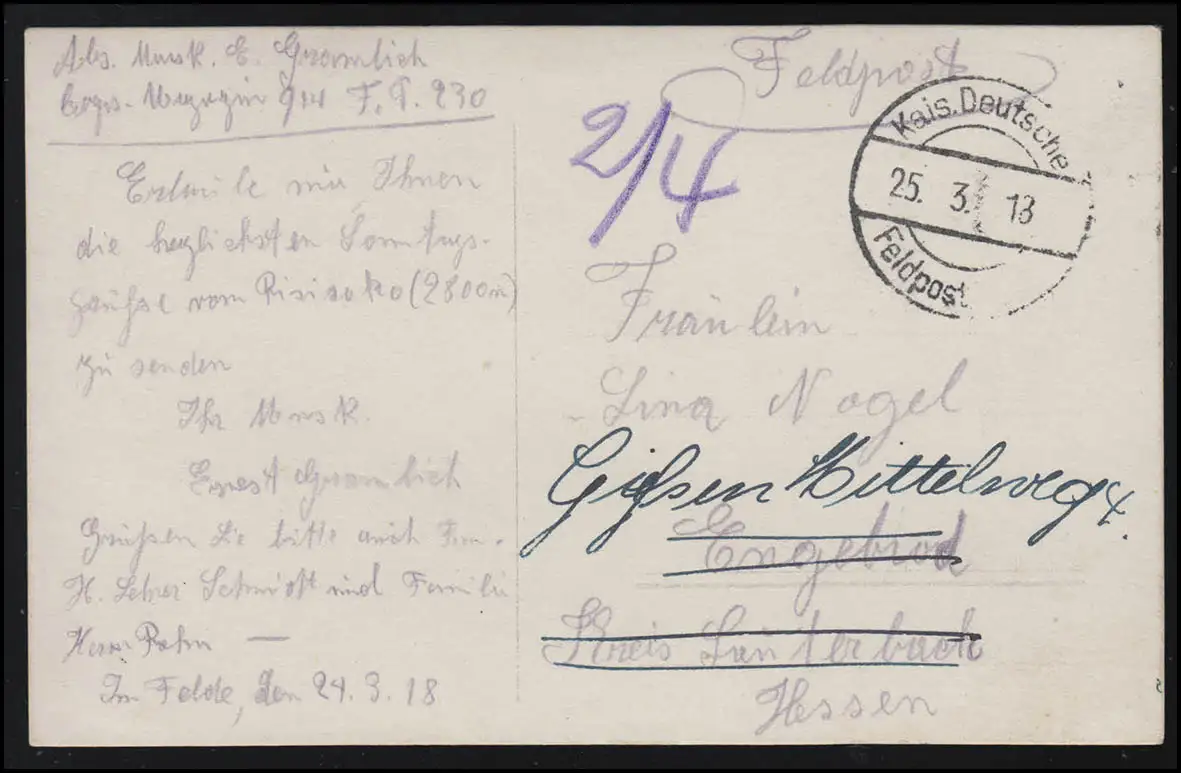 Abs. Musk. E. Gramlich
Corps-Magazin 914 F. P. 230
Erlaube mir Ihnen
die herzlichsten Sonntags-
grüße vom Pisisoko (2800 m)
zu senden
Ihr Musk.
Ernst Gramlich
Grüßen Sie bitte auch Fam.
H. Lehrer Schmidt und Familie
Herrn Rahn —
Im Felde, den 24.3.18
Feldpost
2/4
Kais. Deutsche
25. 3. 18
Feldpost
Fräulein
Lina Nagel
Gießen Mittelweg 4.
Engelrod
Kreis Lauterbach
Hessen